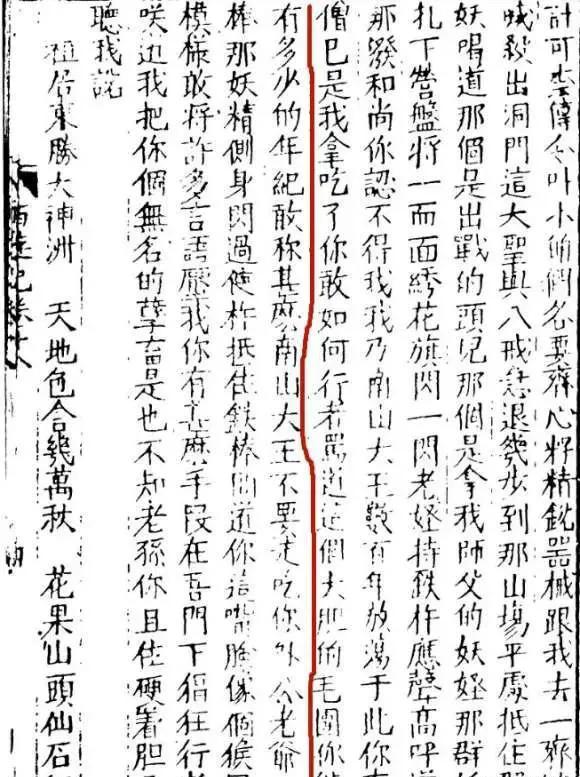 計可傳令叫小的們各要齊心將精銳器械跟我去一齊
喊殺出洞門這大聖與八戒急退幾步到那山場平處抵住
妖喝道那個是出戰的頭兒那個是拿我師父的妖怪那群
扎下營盤將一面綉花旗閃一閃老怪持鉄杵應聲高呼道
那潑和尚你認不得我我乃南山大王數百年放蕩于此你
僧已是我拿吃了你敢如何行者罵道這個大胆的毛團你能
有多少的年紀敢称甚麼南山大王不要走吃你外公老爺
棒那妖精側身閃過使杵抵住鉄棒道你這嘴臉像個猴
模樣敢將許多言語壓我你有甚麼手段在吾門下猖狂行者
咲道我把你個無名的孽畜是也不知老孫你且住硬着胆
聽我說
祖居東勝大神洲　天地色含幾萬秋　花果山頭仙石